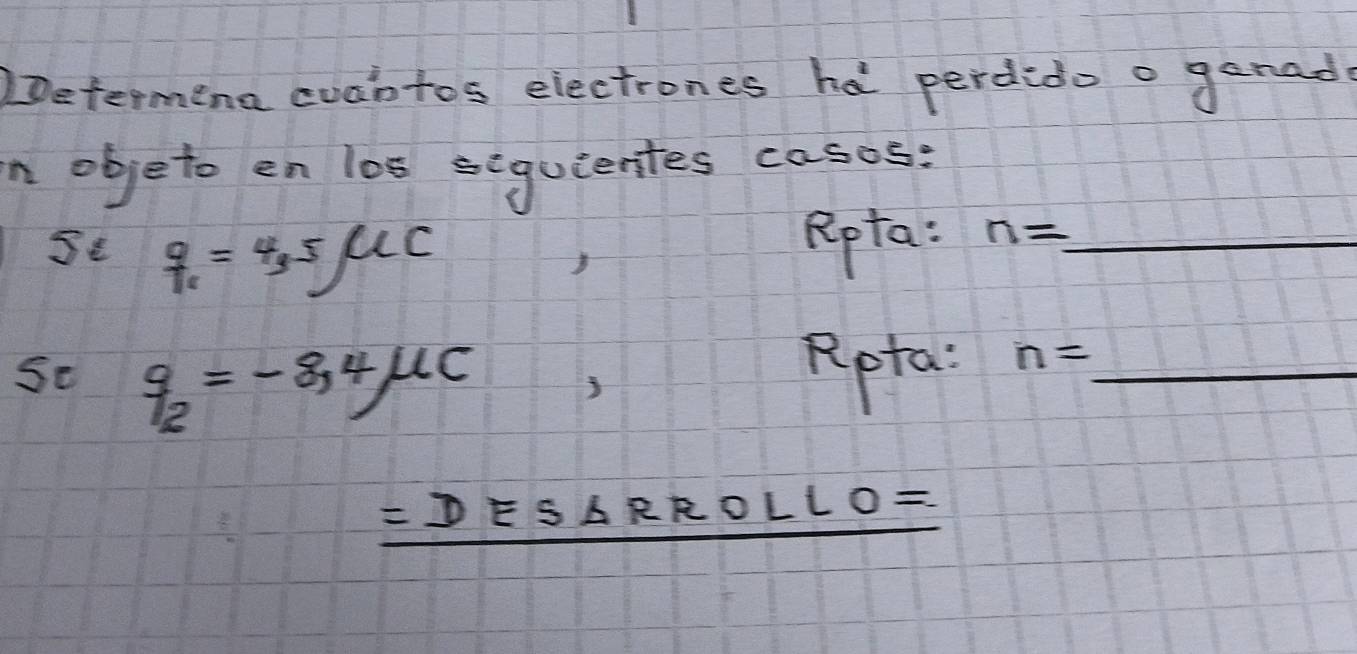 Determina cuántos electrones há perdido o ganado
n objeto en los siguientes casos:
Si q₁ = 4,5 μC , Rpta: n=
Si q₂ = -8,4 μC , Rpta: n=
= DESARROLLO =